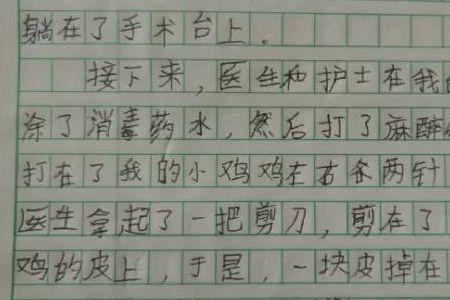 躺在了手术台上。
接下来，医生和护士在我
涂了消毒药水，然后打了麻醉
打在了我的小鸡鸡左右各两针
医生拿起了一把剪刀，剪在了
鸡的皮上，于是，一块皮掉在